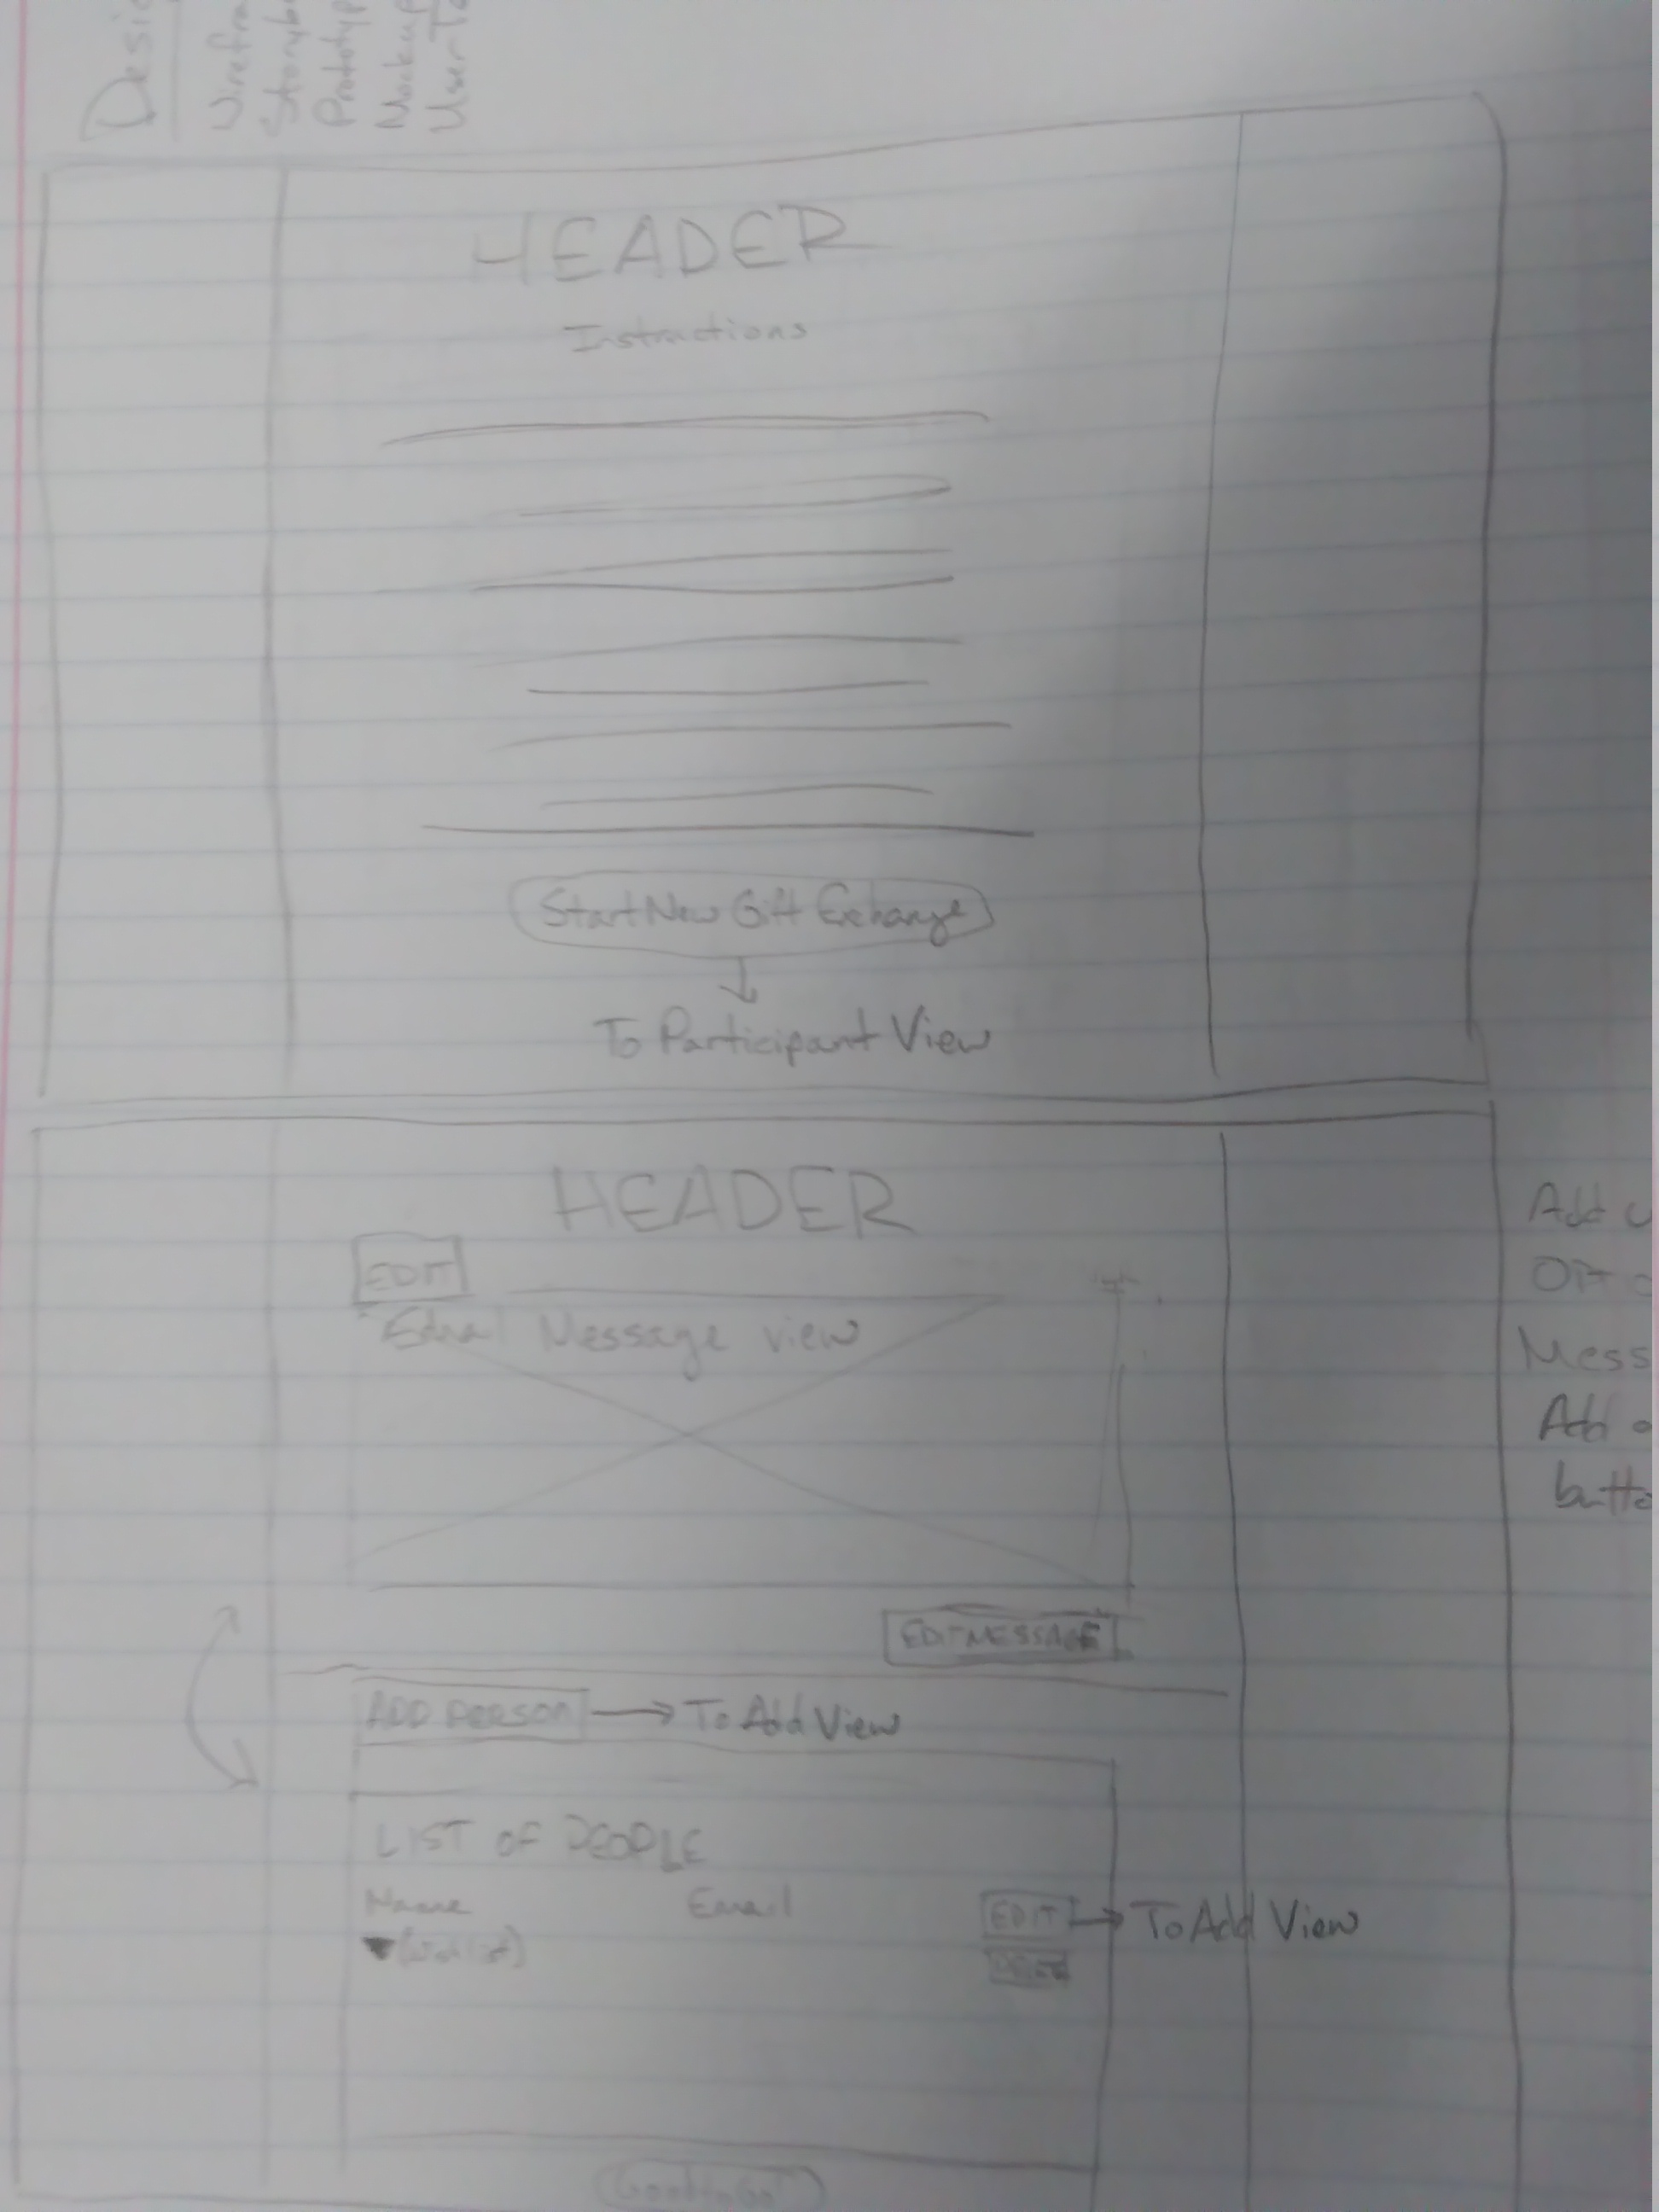 Desi
Wirefra
Storyb
Prototyp
Mockup
User Te
HEADER
Instructions
Start New Gift Exchange
To Participant View
HEADER
EDIT
Email Message view
EDIT MESSAGE
ADD PERSON → To Add View
LIST OF PEOPLE
Name Email EDIT → To Add View
▼(wishlist)
Add
Mess
Add
butto